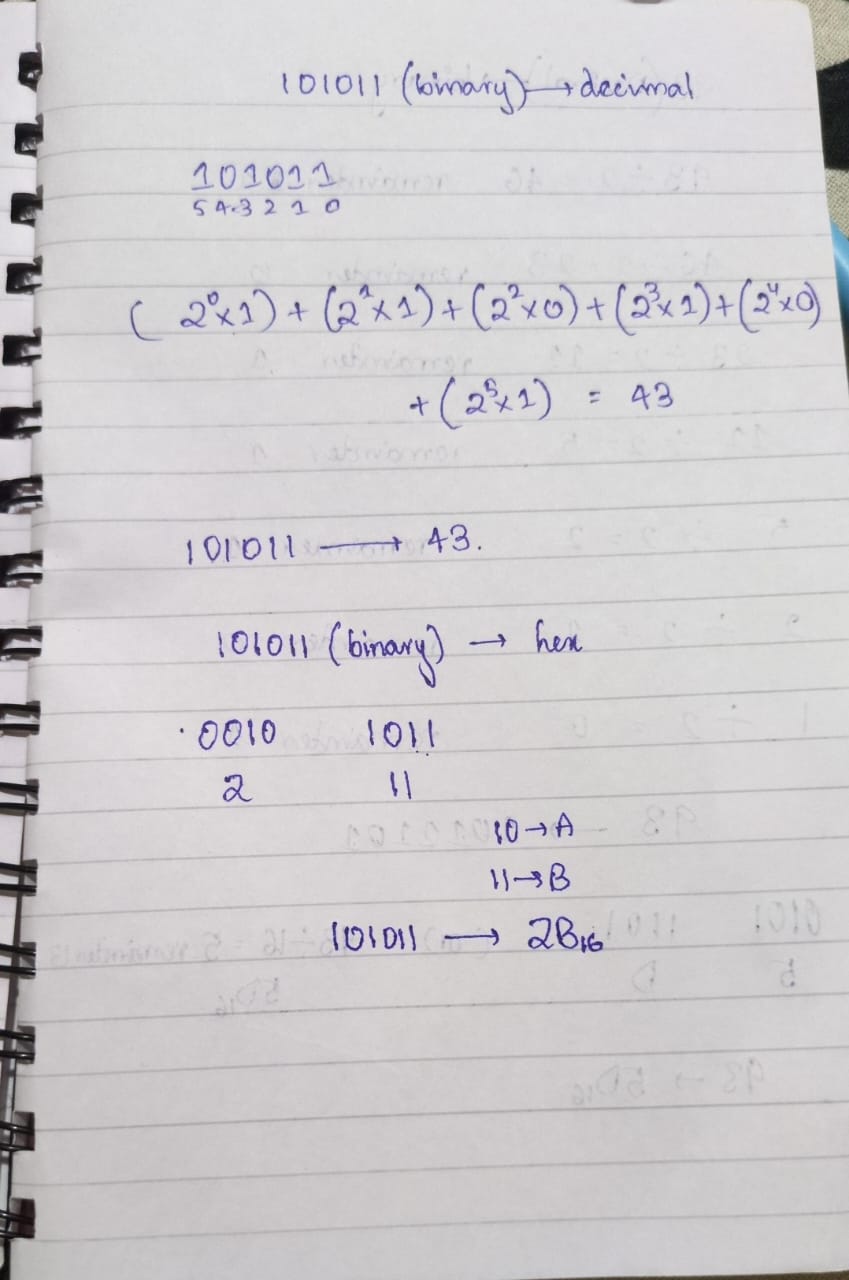 101011 (binary) → decimal
101011
5 4 3 2 1 0
( 2⁰x1) + (2¹x1) + (2²x0) + (2³x1) + (2⁴x0)
+ (2⁵x1) = 43
101011 → 43.
101011 (binary) → hex
0010 1011
2 11
10 → A
11 → B
101011 → 2B₁₆